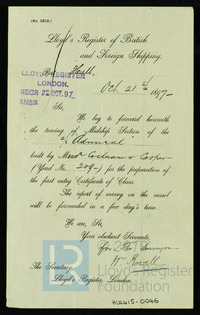 (No. 2912.)
Lloyd's Register of British
and Foreign Shipping.
Hull,
Oct. 21st 1897
LLOYD'S REGISTER
LONDON.
RECD 22 OCT. 97
ANSD
Sir,
We beg to forward herewith
the tracing of Midship Section of the
"Admiral"
built by Messrs Cochrane & Cooper
(Yard No. 209) for the preparation of the
first entry Certificate of Class.
The report of survey on the vessel
will be forwarded in a few day's time.
We are, Sir,
Your obedient Servants,
For the Surveyors
W.
The Secretary,
Lloyd's Register, London.
Lloyd's Register
Foundation
HUL615-0046